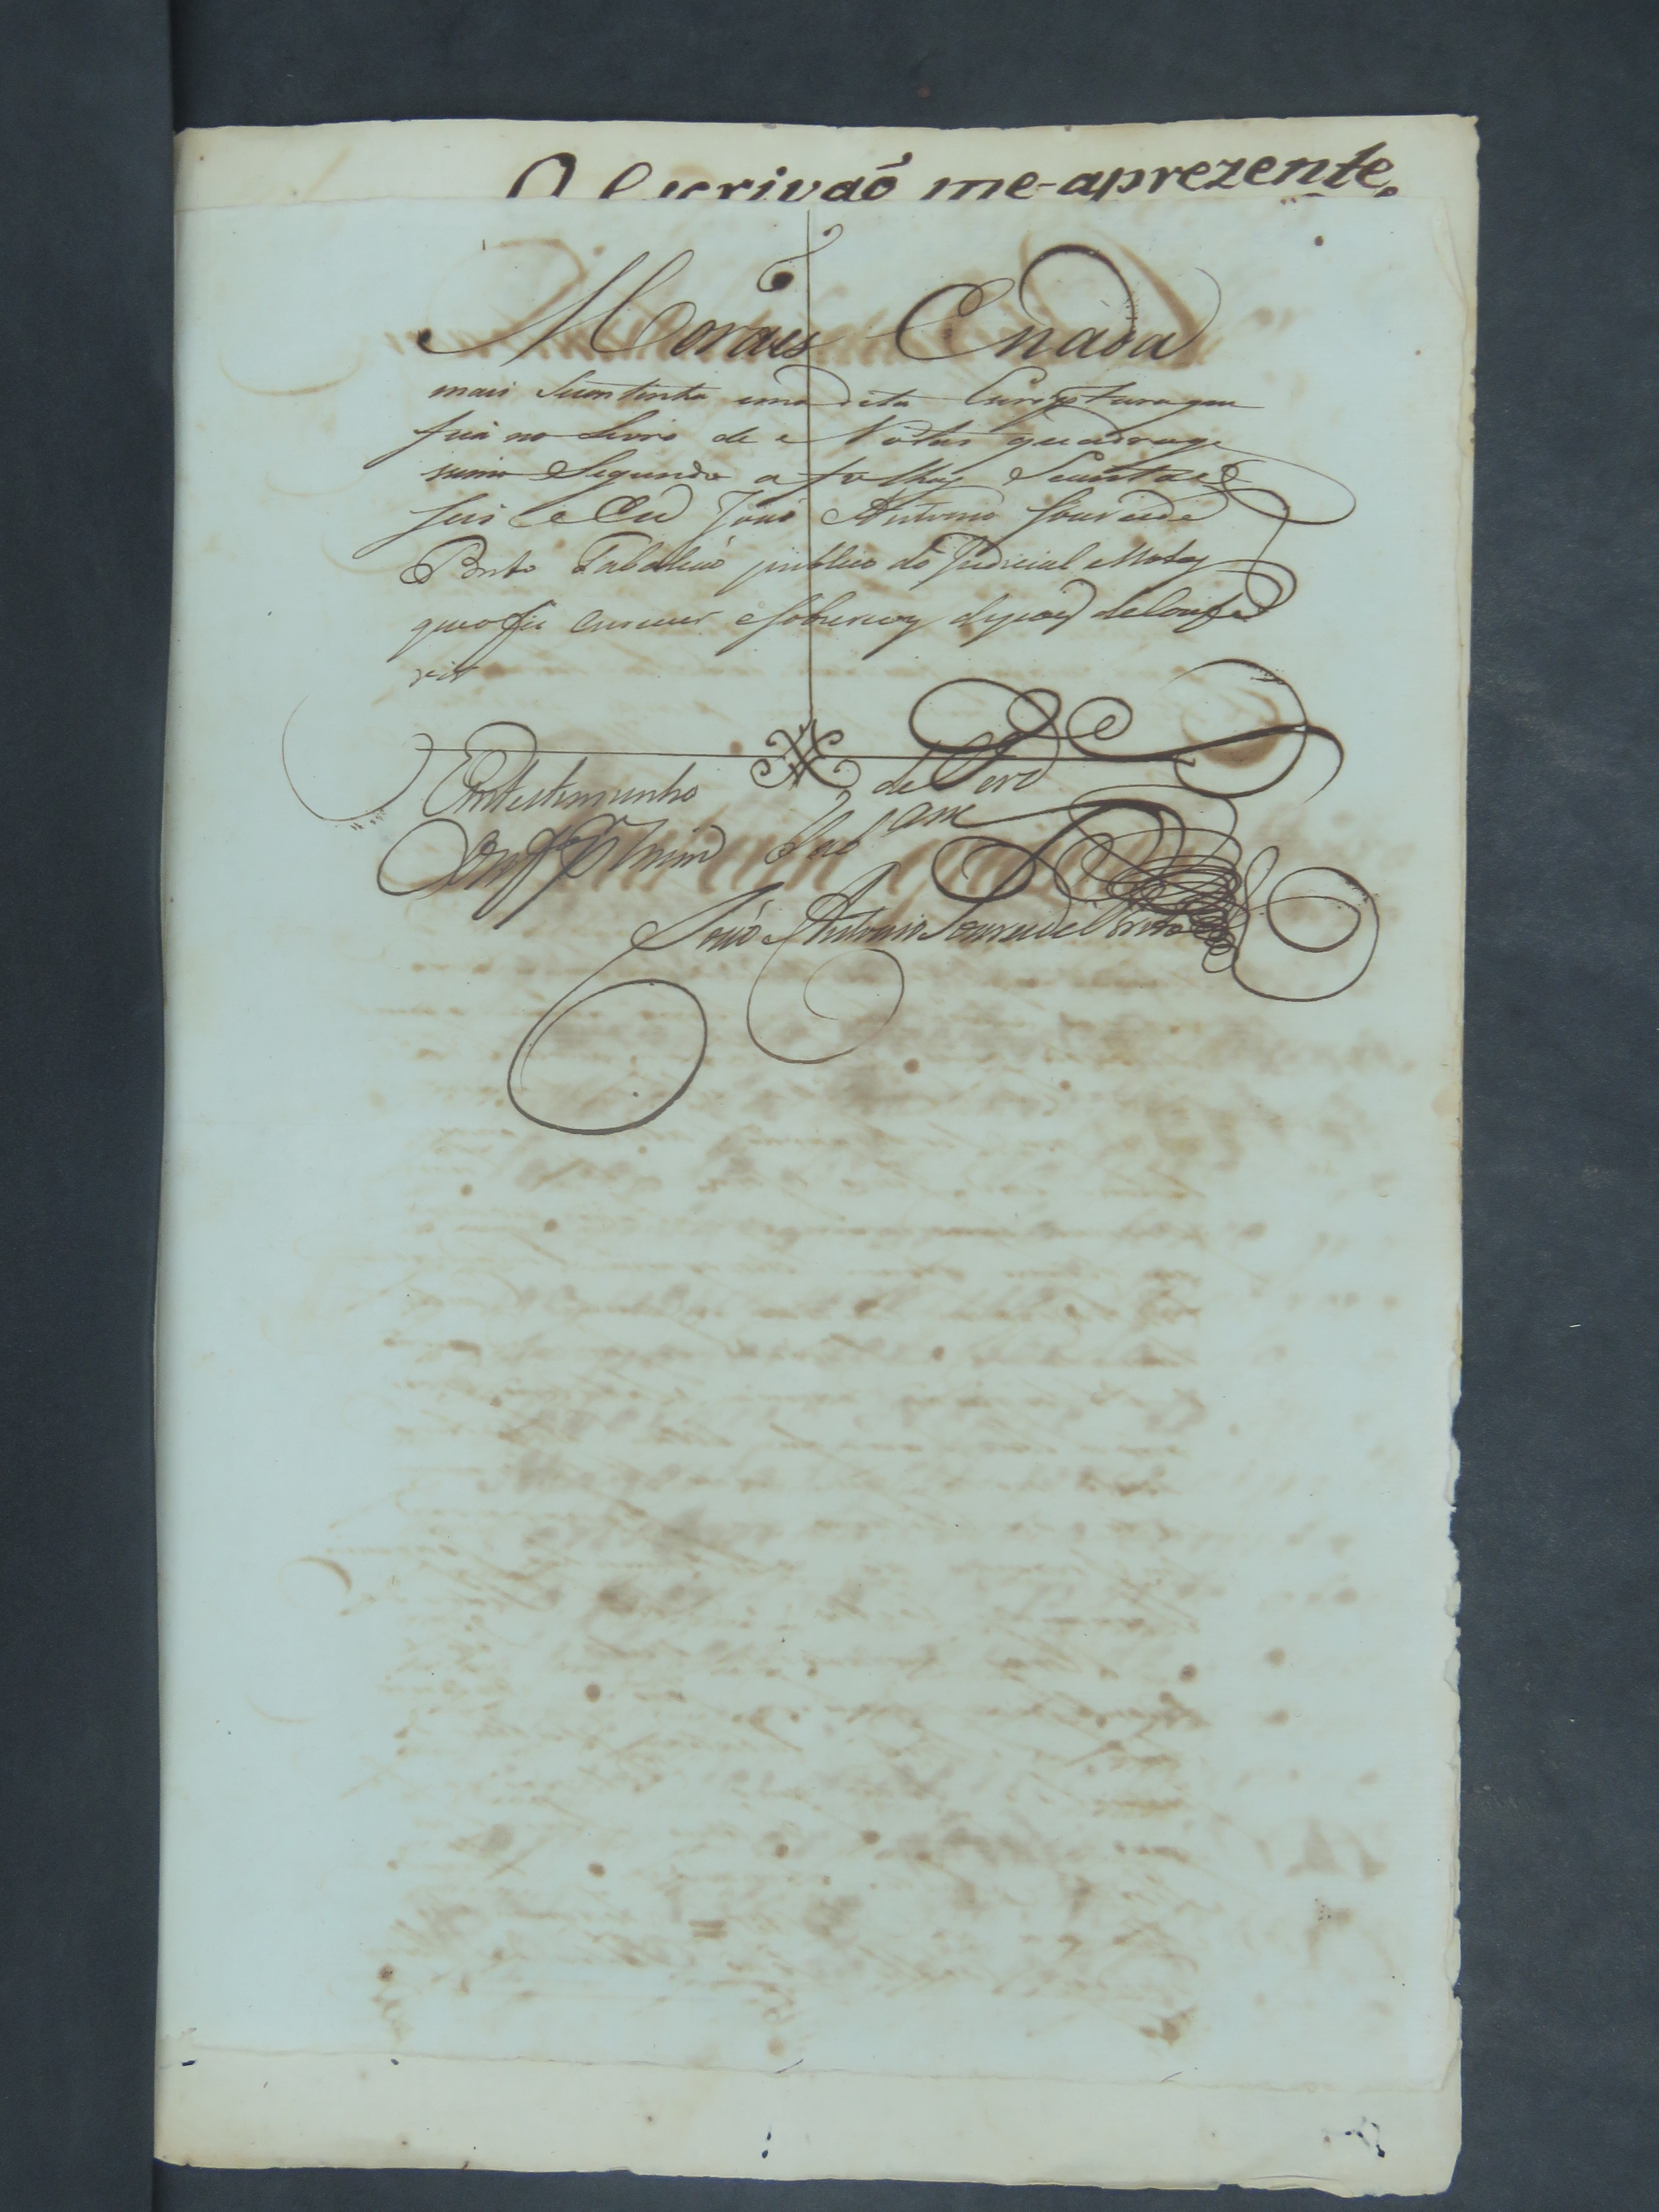 O Escrivaõ me-aprezente
Moraes Enada
mais Secontinha ema dita Escriptura que
fica no Livro de Notas quadrage
simo Segundo a folhas Secenta e
seis e Eu Joaõ Antonio
Porto Tabaliaõ publico do Judicial e Notas
que o fiz escrever esobescrevy depois de Confe
rir
Emtestemunho de Verd
Joaõ Antonio Porto